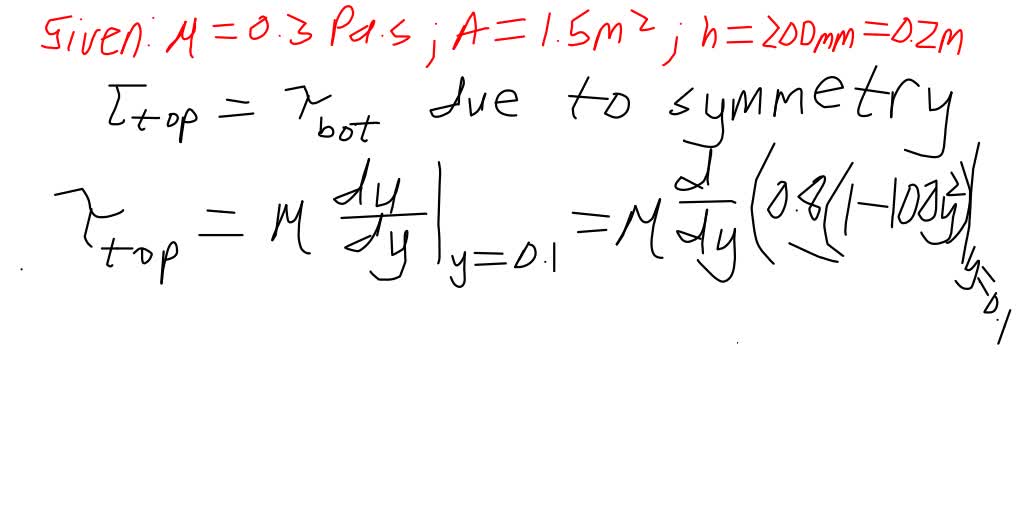 Given: μ = 0.3 Pa.s ; A = 1.5m² ; h = 200mm = 0.2m
τtop = τbot due to symmetry
τtop = μ dy/dy |y=0.1 = μ d/dy (0.8(1-100y²)|y=0.1